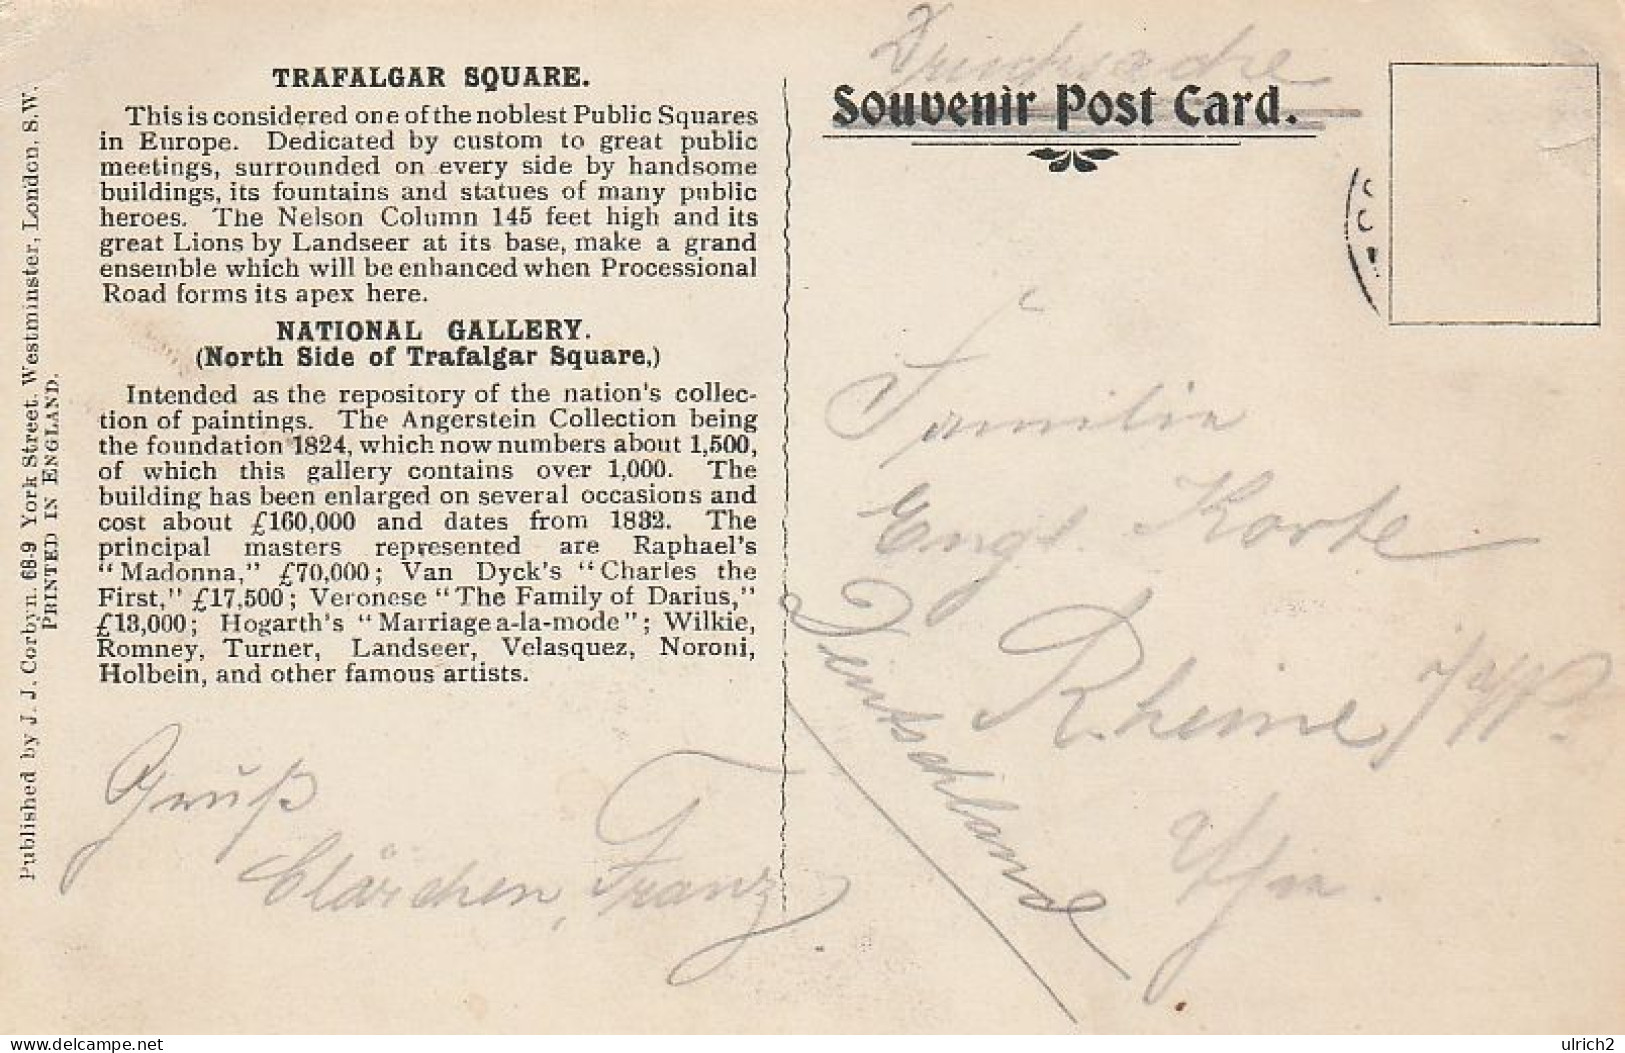 Published by J. J. Corbyn. 68-9 York Street. Westminster, London, S.W.
PRINTED IN ENGLAND.
TRAFALGAR SQUARE.
This is considered one of the noblest Public Squares
in Europe. Dedicated by custom to great public
meetings, surrounded on every side by handsome
buildings, its fountains and statues of many public
heroes. The Nelson Column 145 feet high and its
great Lions by Landseer at its base, make a grand
ensemble which will be enhanced when Processional
Road forms its apex here.
NATIONAL GALLERY.
(North Side of Trafalgar Square,)
Intended as the repository of the nation's collec-
tion of paintings. The Angerstein Collection being
the foundation 1824, which now numbers about 1,500,
of which this gallery contains over 1,000. The
building has been enlarged on several occasions and
cost about £160,000 and dates from 1832. The
principal masters represented are Raphael's
"Madonna," £70,000; Van Dyck's "Charles the
First," £17,500; Veronese "The Family of Darius,"
£13,000; Hogarth's "Marriage a-la-mode"; Wilkie,
Romney, Turner, Landseer, Velasquez, Noroni,
Holbein, and other famous artists.
Gruß
Clärchen, Franz.
Drucksache
Souvenir Post Card.
Familie
Engl. Korte
Rheine
Deutschland
delcampe.net
ulrich2